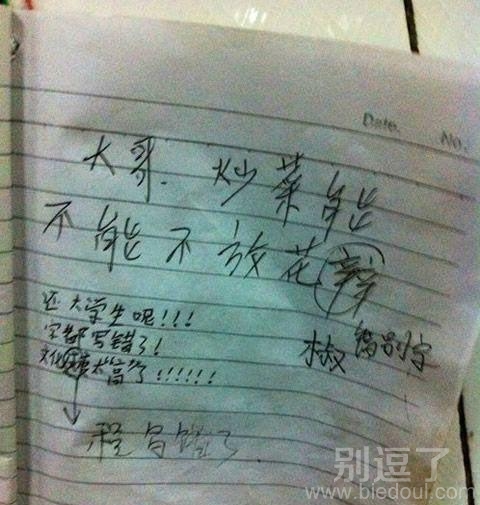 Date. No.
大哥.炒菜能
不能不放花辩
椒 错别字
还大学生呢!!!
字都写错了!
文化太"高"了!!!!!!
程写错了.
别逗了
www.biedoul.com